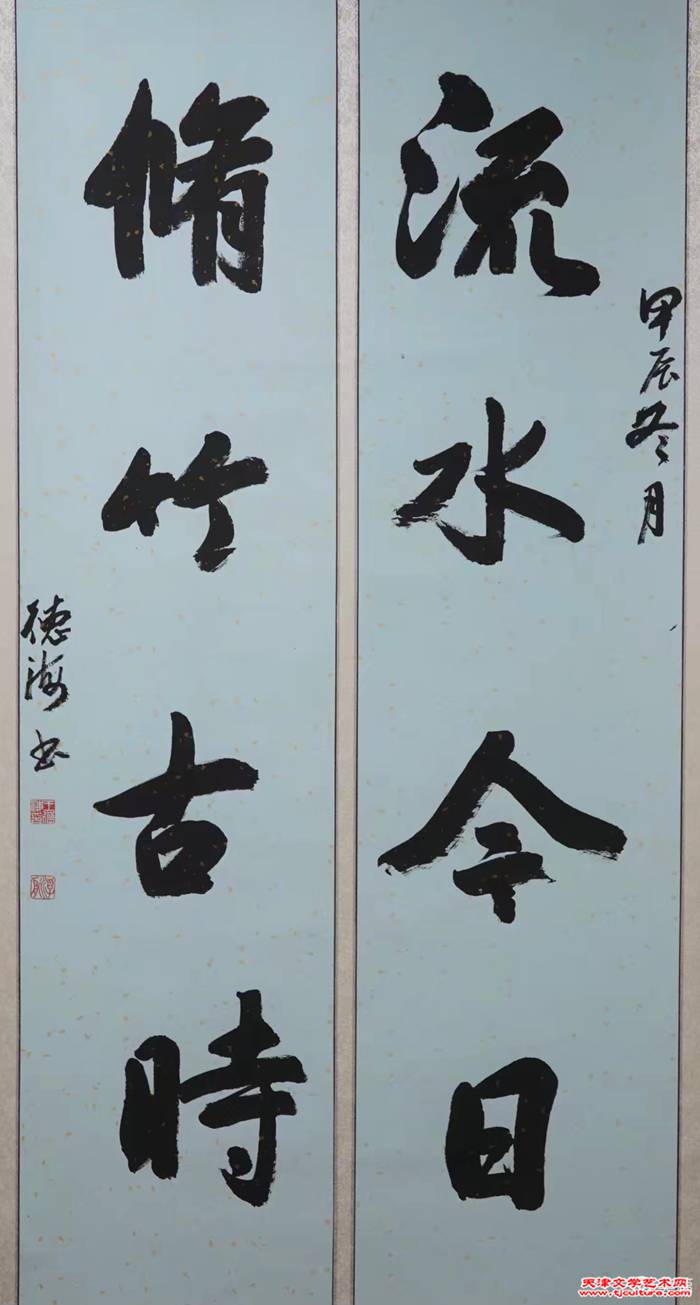 甲辰冬月
流水今日
脩竹古時
德海书
天津文学艺术网
www.tjculture.com